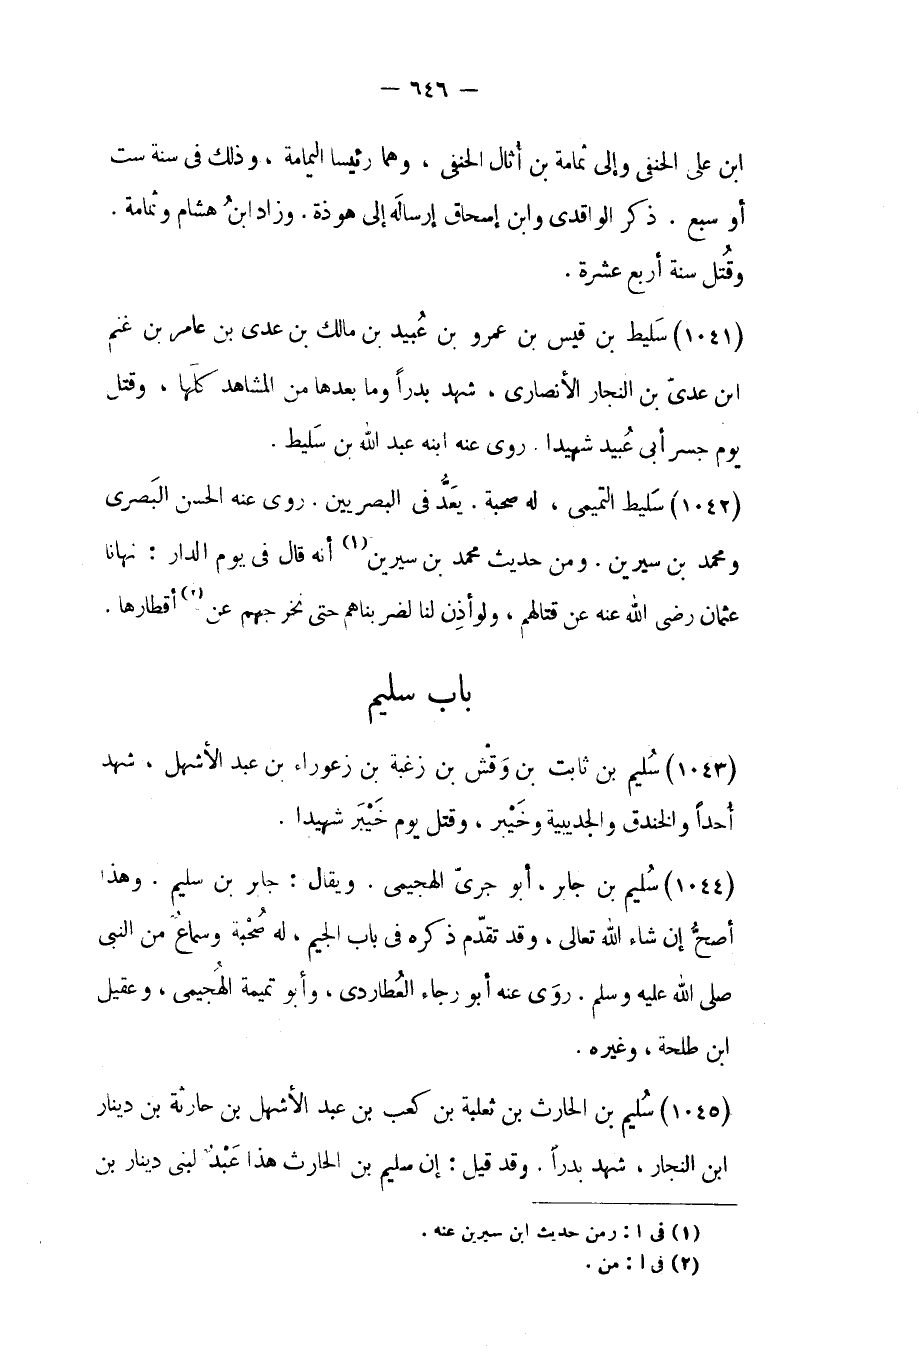 — ٦٤٦ —
ابن على الحنفى وإلى ثمامة بن أثال الحنفى ، وهما رئيسا اليمامة ، وذلك فى سنة ست
أو سبع . ذكر الواقدى وابن إسحاق إرسالَه إلى هوذة . وزاد ابنُ هشام وثمامة .
وقُتل سنة أربع عشرة .
(١٠٤١) سَليط بن قيس بن عمرو بن عُبيد بن مالك بن عدى بن عامر بن غنم
ابن عدىّ بن النجار الأنصارى ، شهد بدراً وما بعدها من المشاهد كلّها ، وقتل
يوم جسر أبى عُبيد شهيدا . روى عنه ابنه عبد الله بن سَليط .
(١٠٤٢) سَليط التميمى ، له صحبة . يعَدُّ فى البصريين . روى عنه الحسن البَصرى
ومحمد بن سيرين . ومن حديث محمد بن سيرين(١) أنه قال فى يوم الدار : نهانا
عثمان رضى الله عنه عن قتالهم ، ولو أذِن لنا لضربناهم حتى نخرجهم عن(٢) أقطارها .
باب سليم
(١٠٤٣) سُليم بن ثابت بن وَقْش بن زغبة بن زعوراء بن عبد الأشهل ، شهد
أُحداً والخندق والحديبية وخَيْبر ، وقتل يوم خَيْبَر شهيدا .
(١٠٤٤) سُليم بن جابر ، أبو جرىّ الهجيمى . ويقال : جابر بن سليم . وهذا
أصحُّ إن شاء الله تعالى ، وقد تقدّم ذكره فى باب الجيم ، له صُحْبة وسماعٌ من النبى
صلى الله عليه وسلم . روَى عنه أبو رجاء العُطاردى ، وأبو تميمة الهُجيمى ، وعقيل
ابن طلحة ، وغيره .
(١٠٤٥) سُليم بن الحارث بن ثعلبة بن كعب بن عبد الأشهل بن حارثة بن دينار
ابن النجار ، شهد بدراً . وقد قيل : إن سليم بن الحارث هذا عَبْدٌ لبنى دينار بن
(١) فى ا : ومن حديث ابن سيرين عنه .
(٢) فى ا : من .